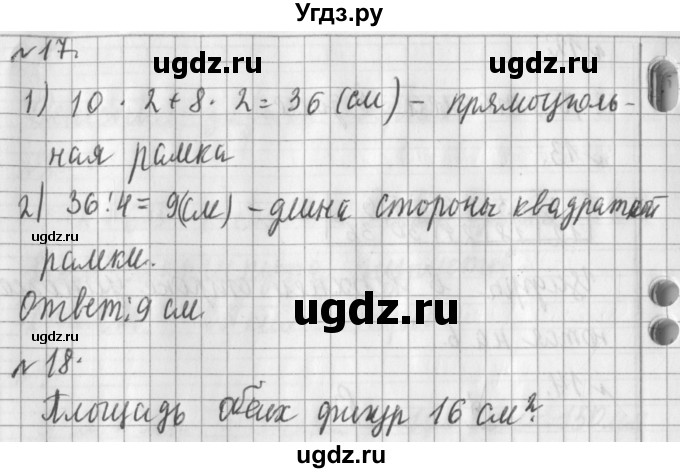 Угдз.ру
№17.
ugdz.ru ugdz.ru
1) 10 · 2 + 8 · 2 = 36 (см) – прямоуголь-
ная рамка
2) 36 : 4 = 9(см) – длина стороны квадратной
ugdz.ru
рамки.
ugdz.ru
Ответ: 9 см
ugdz.ru
№18.
Площадь обеих фигур 16 см².
ugdz.ru ugdz.ru